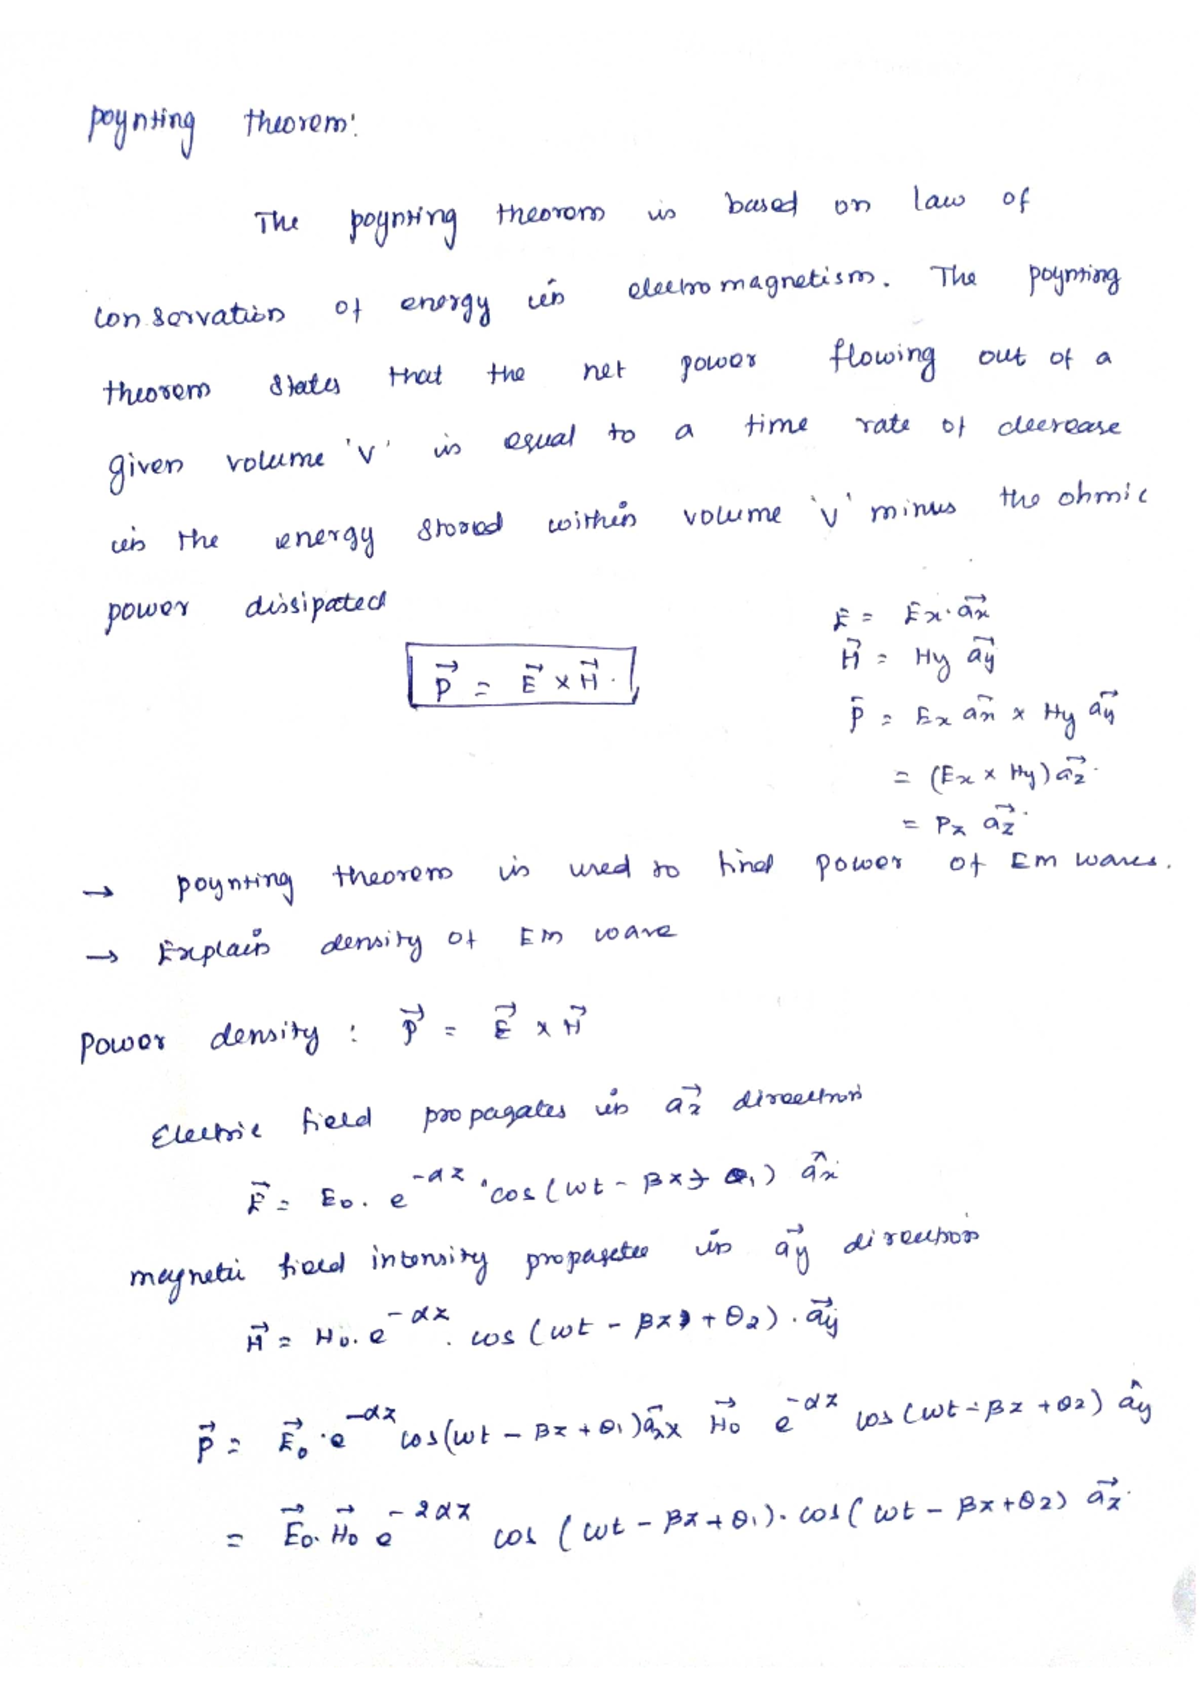 poynting theorem:
The poynting theorem is based on law of
conservation of energy in electromagnetism. The poynting
theorem states that the net power flowing out of a
given volume 'v' is equal to a time rate of decrease
in the energy stored within volume 'v' minus the ohmic
power dissipated
E̅ = Ex·a⃗x
H⃗ = Hy a⃗y
P⃗ = E⃗ × H⃗.
P̅ = Ex a̅x × Hy a⃗y
= (Ex × Hy) a⃗z.
= Pz a⃗z.
→ poynting theorem is used to find power of EM waves.
→ Explain density of EM wave
Power density : P⃗ = E⃗ × H⃗
Electric field propagates in a⃗z direction
E⃗ = E0. e^-αz .cos(ωt - βz + θ1) âx
magnetic field intensity propagates in a⃗y direction
H⃗ = H0. e^-αz . cos(ωt - βz + θ2). a⃗y
P⃗ = E⃗0 .e^-αz cos(ωt - βz + θ1) a̅x × H⃗0 e^-αz cos(ωt - βz + θ2) ây
= E⃗0. H⃗0 e^-2αz cos(ωt - βz + θ1). cos(ωt - βz + θ2) a⃗z.